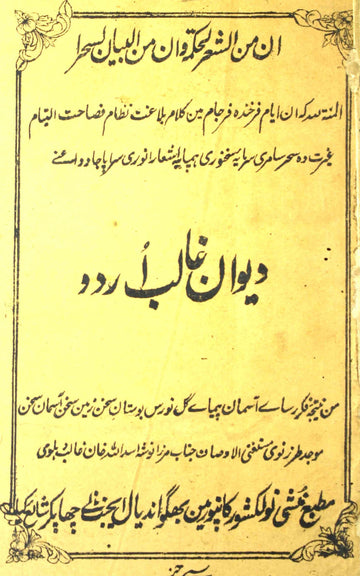 ان من الشعر لحكمة و ان من البيان لسحرا
المنة للہ کہ ان ایام فرخندہ فرجام مین کلام بلاغت نظام فصاحت التیام
غیرت دہ سحر سامری سرمایہ سخنوری ہمپایہ اشعار انوری سراپا جادو اعنے
دیوان غالب اُردو
من نتیجہ فکر رساے آسمان پیماے گل نورس بوستان سخن زمین سخن آسمان سخن
موجد طرز نوی مستغنی الاوصاف جناب مرزا نوشہ اسد اللہ خان غالب دہلوی
مطبع منشی نولکشور کانپور مین بھگواندیال ایجنٹ نے چھاپکر شائع کیا